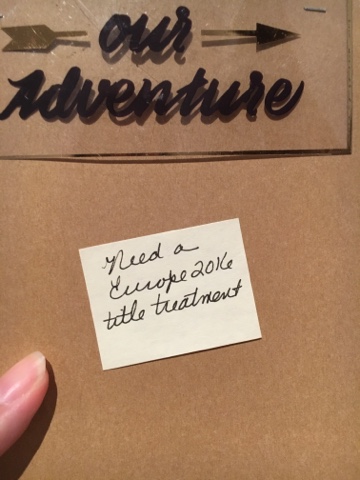 our
Adventure
Need a
Europe 2016
title treatment